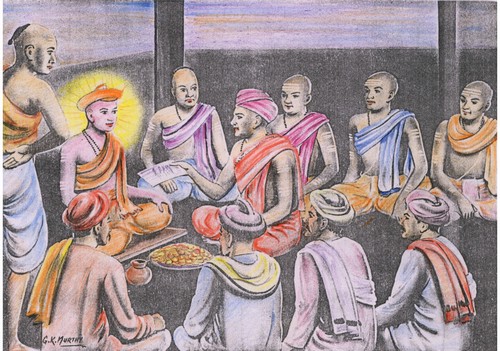 G.K. MURTHY